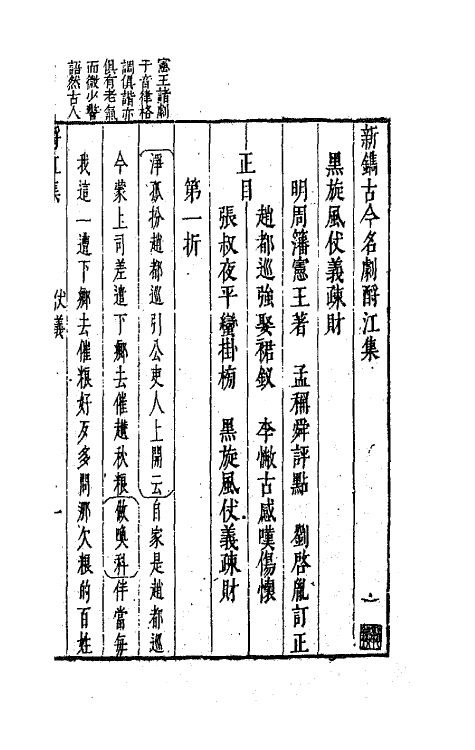 新鐫古今名劇酹江集
黑旋風仗義疎財
明周藩憲王著　孟稱舜評點　劉啓胤訂正
正目
趙都巡強娶裙釵　李憋古感嘆傷懷
張叔夜平蠻掛榜　黑旋風仗義疎財
第一折
淨孤扮趙都巡引公吏人上開云自家是趙都巡
今蒙上司差遣下鄉去催趲秋粮做喚科伴當每
我這一遭下鄉去催粮好歹多問那欠粮的百姓
憲王諸劇
于音律格
調俱諧亦
俱有老氣
而微少警
語然古人
酹江集
仗義
一